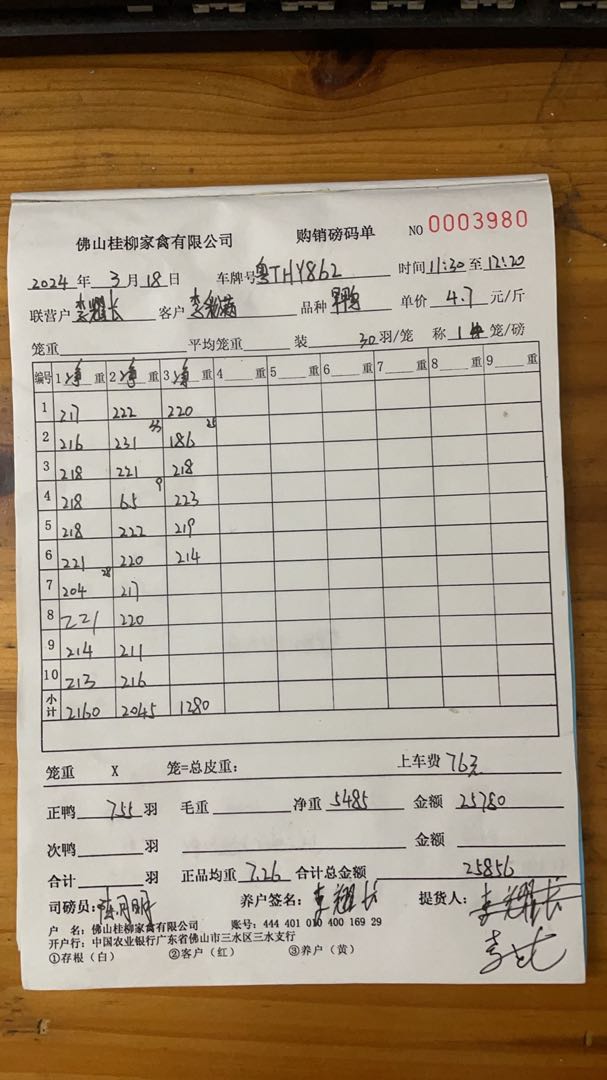 佛山桂柳家禽有限公司 购销磅码单 NO 0003980
2024 年 3 月 18 日 车牌号 粤THY862 时间 11:30 至 12:20
联营户 李耀长 客户 李 满 品种 单价 4.7 元/斤
笼重 平均笼重 装 30 羽/笼 称 1 笼/磅
编号 1 净 重 2 净 重 3 净 重 4 重 5 重 6 重 7 重 8 重 9 重
1 217 222 220
2 216 231 33 186 25
3 218 221 218
4 218 65 9 223
5 218 222 219
6 221 220 214
7 204 28 217
8 221 220
9 214 211
10 213 216
小计 2160 2045 1280
笼重 X 笼=总皮重: 上车费 76元
正鸭 755 羽 毛重 净重 5485 金额 25780
次鸭 羽 金额
合计 羽 正品均重 7.26 合计总金额 25856
司磅员: 养户签名: 李耀长 提货人: 李耀长
户 名: 佛山桂柳家禽有限公司 账号: 444 401 010 400 169 29
开户行: 中国农业银行广东省佛山市三水区三水支行
①存根（白） ②客户（红） ③养户（黄）